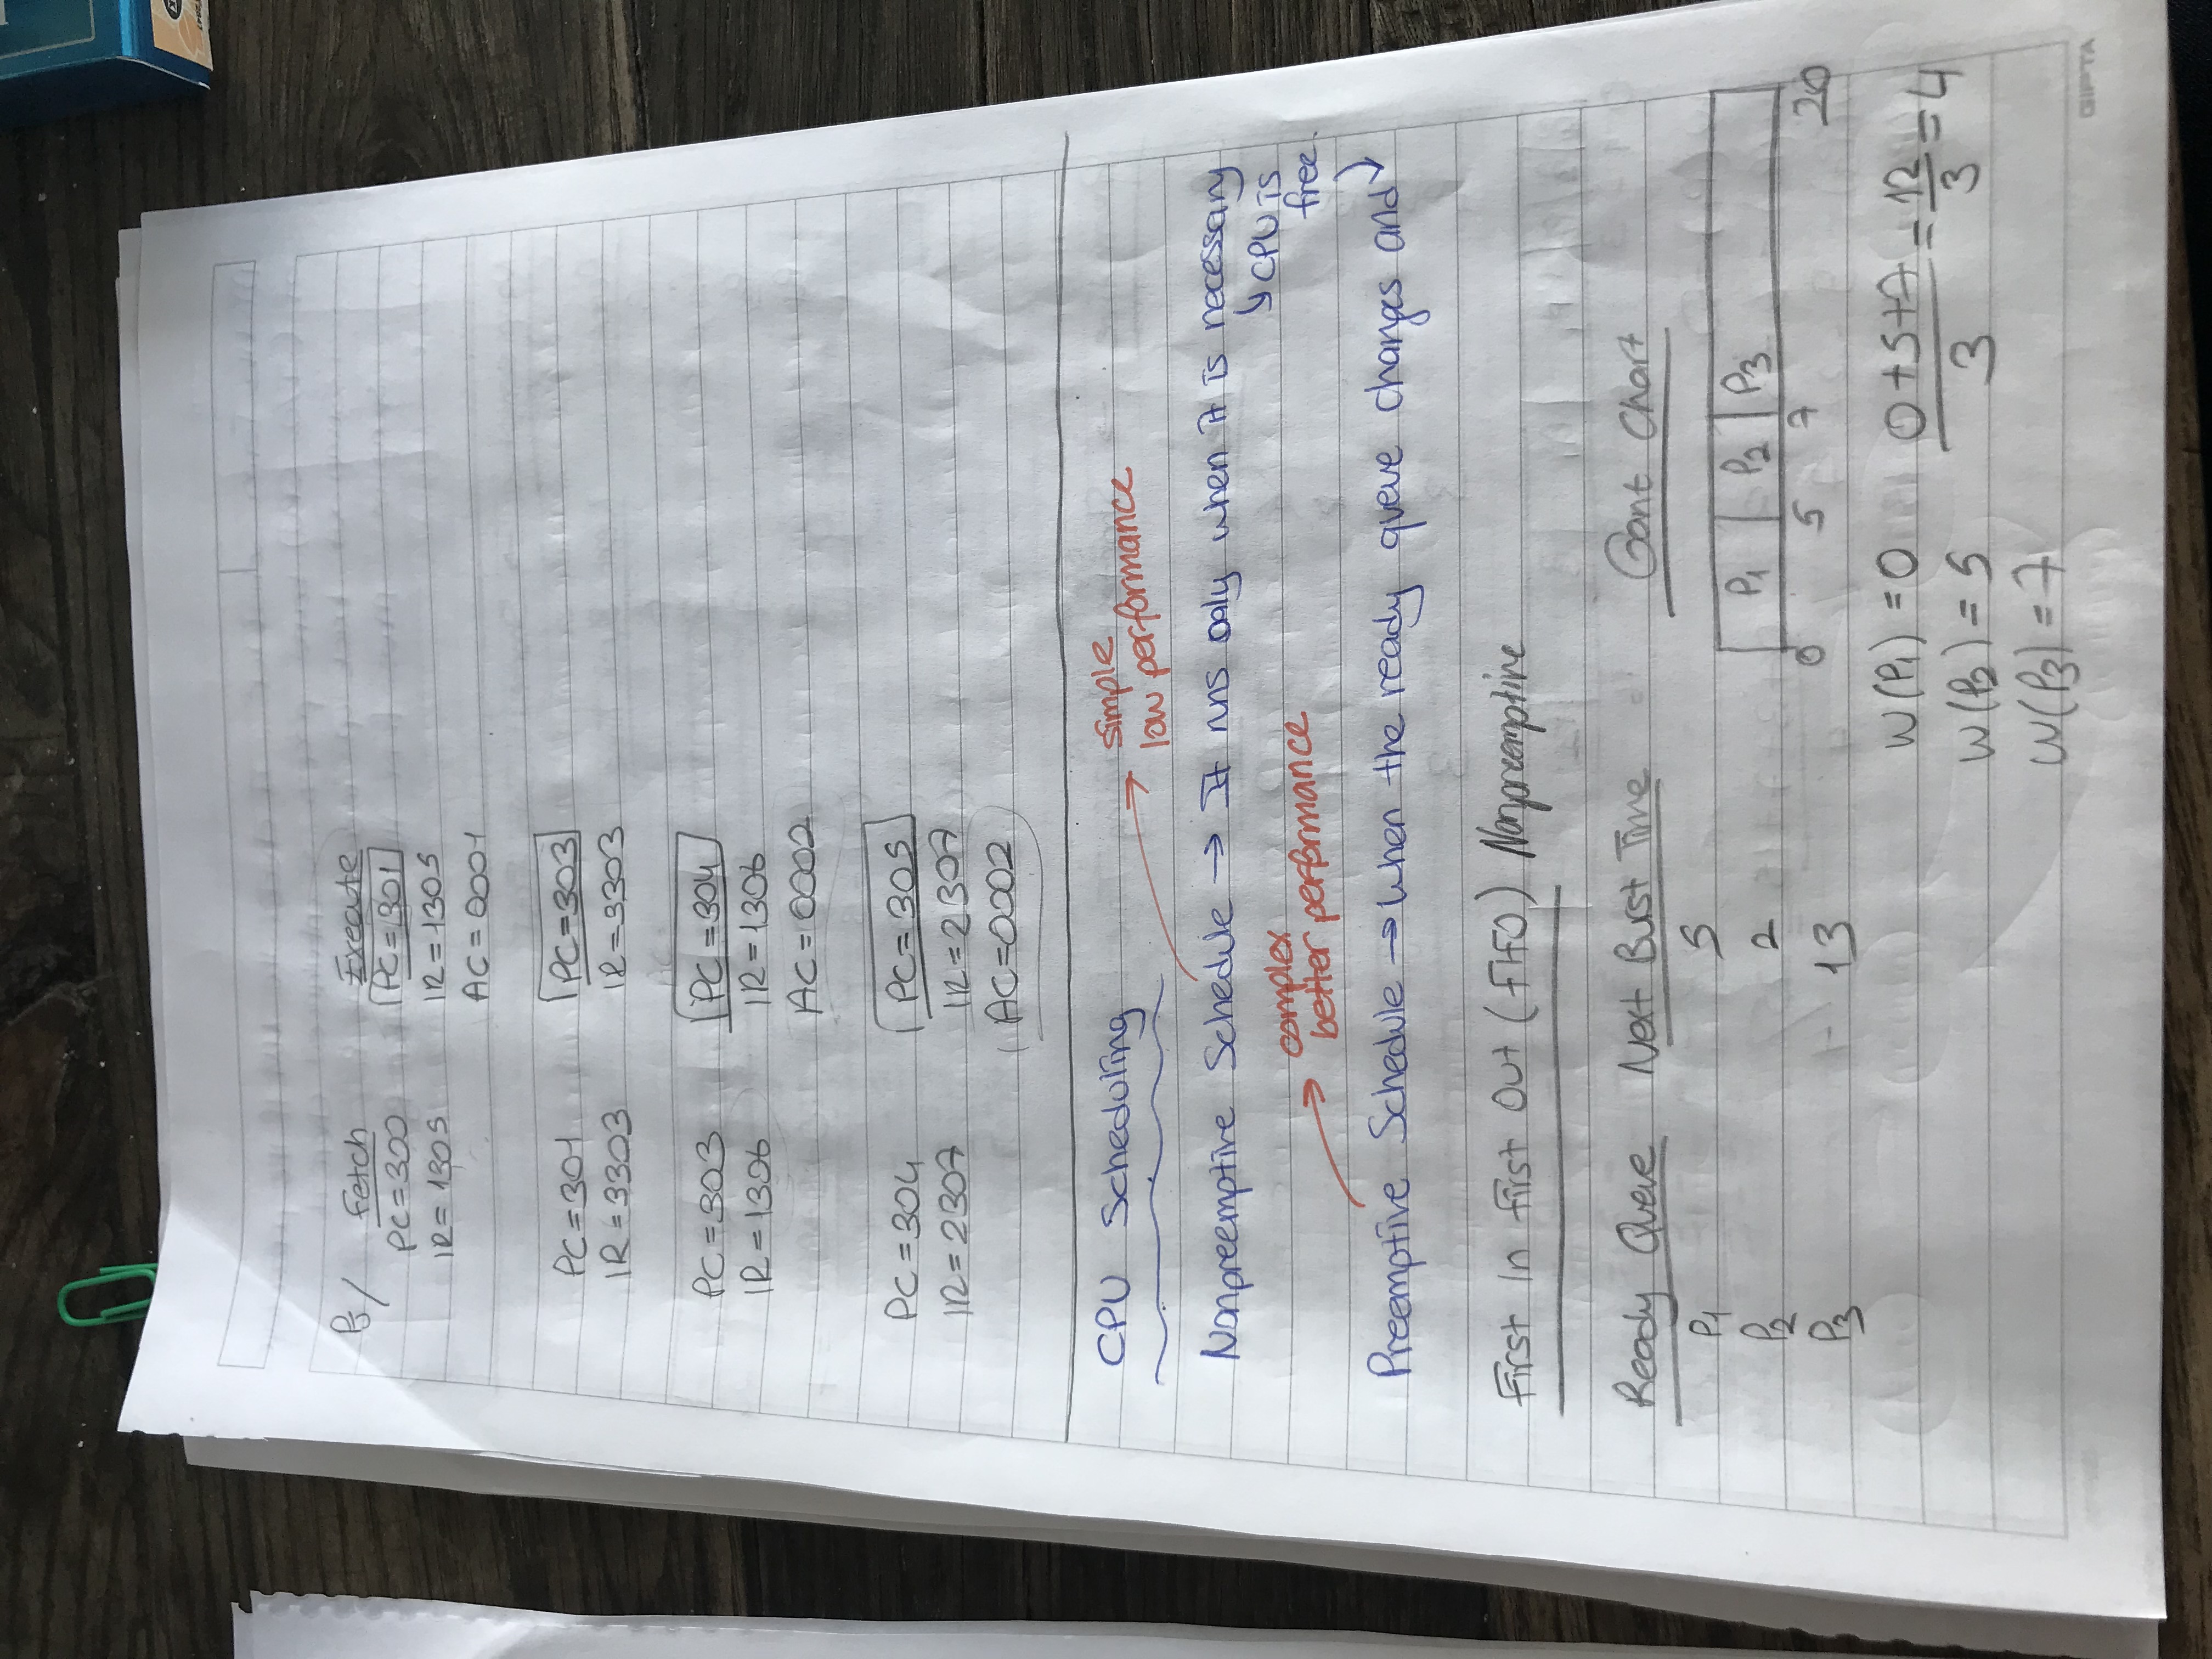 P5/ Fetch Execute
PC=300 PC=301
IR=1305 IR=1305
AC=0001
PC=301 PC=303
IR=3303 IR=3303
AC=
PC=303 PC=304
IR=1306 IR=1306
AC=0002
PC=304 PC=305
IR=2307 IR=2307
AC=0002
CPU Scheduling
simple
low performance
Nonpreemptive Schedule → It runs only when it is necessary
↳ CPU is
free.
complex
better performance
Preemptive Schedule → When the ready queue changes and
First In First Out (FIFO) Nonpreemptive
Ready Queue Next Burst Time Gant Chart
P1 5
P2 2
P3 13
P1 P2 P3
0 5 7 20
W(P1) = 0
W(P2) = 5
W(P3) = 7
0+5+7/3 = 12/3 = 4
GIPTA